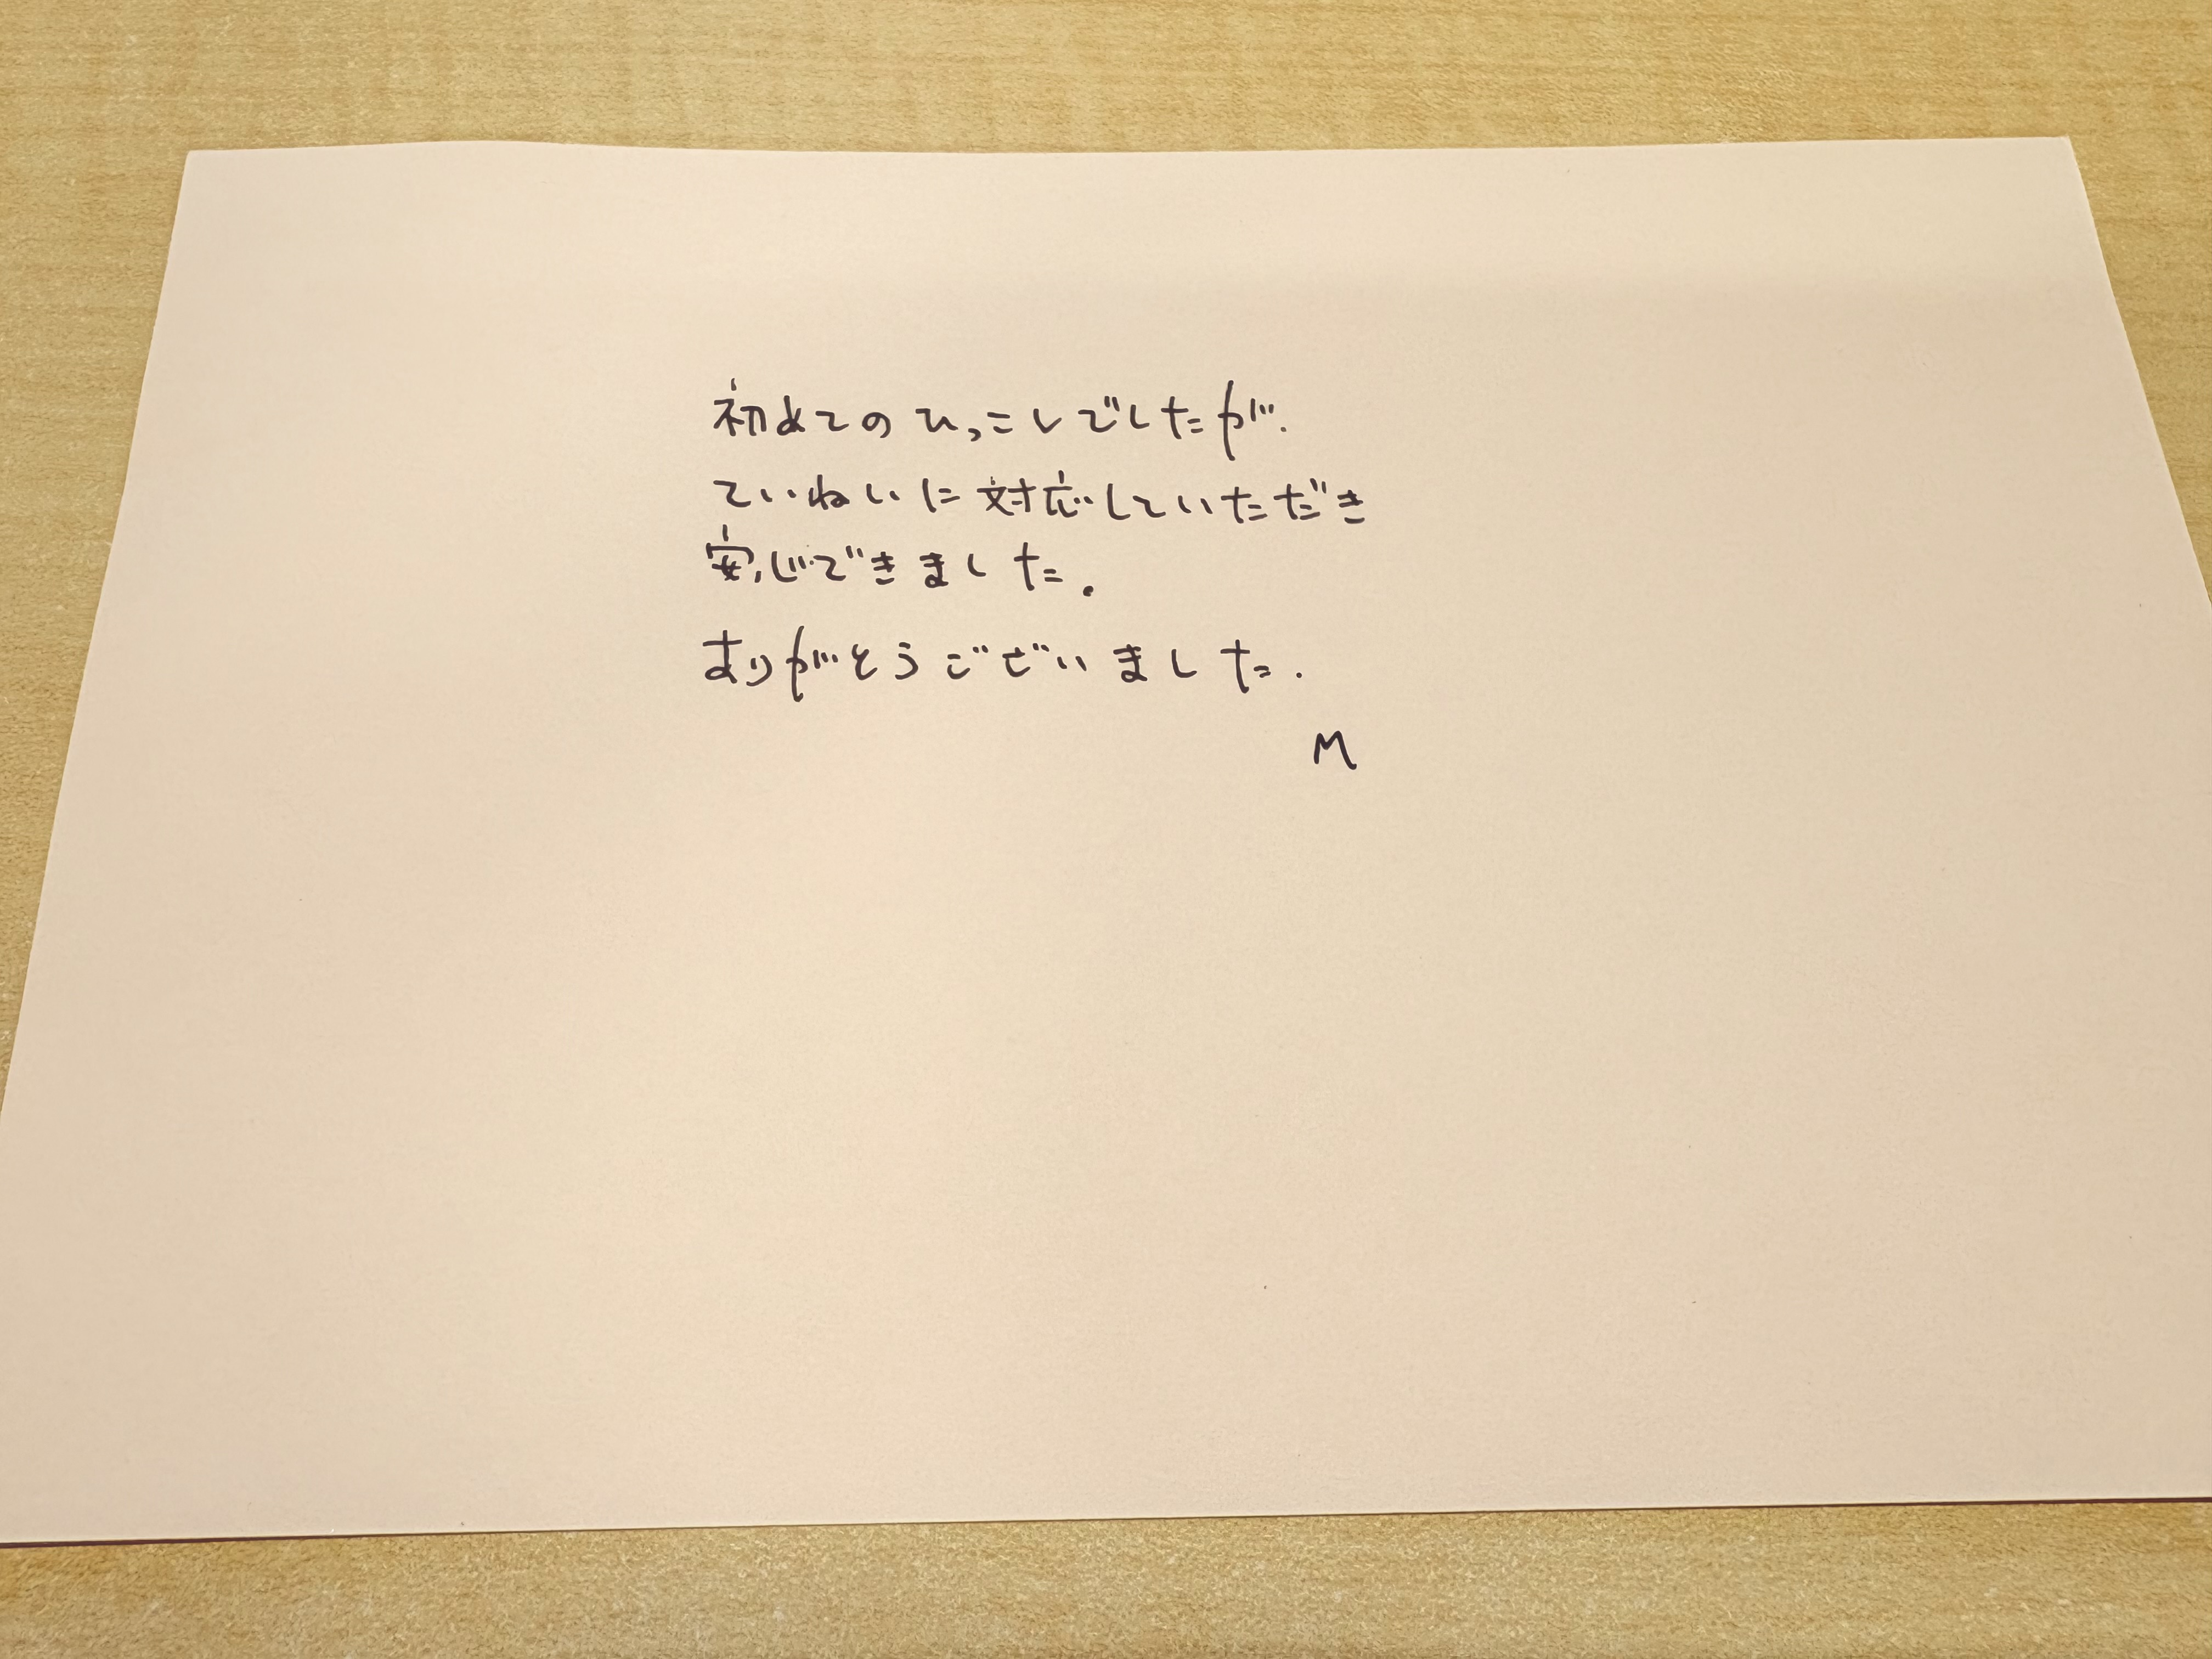 初めてのひっこしでしたが.
ていねいに対応していただき
安心できました.
ありがとうございました.
M